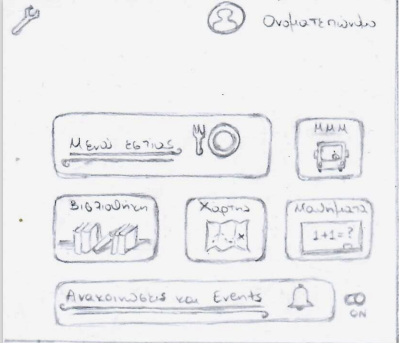 Ονοματεπώνυμο
Μενού εστίας
ΜΜΜ
Βιβλιοθήκη
Χάρτης
Μαθήματα
1+1=?
Ανακοινώσεις και Events
ON